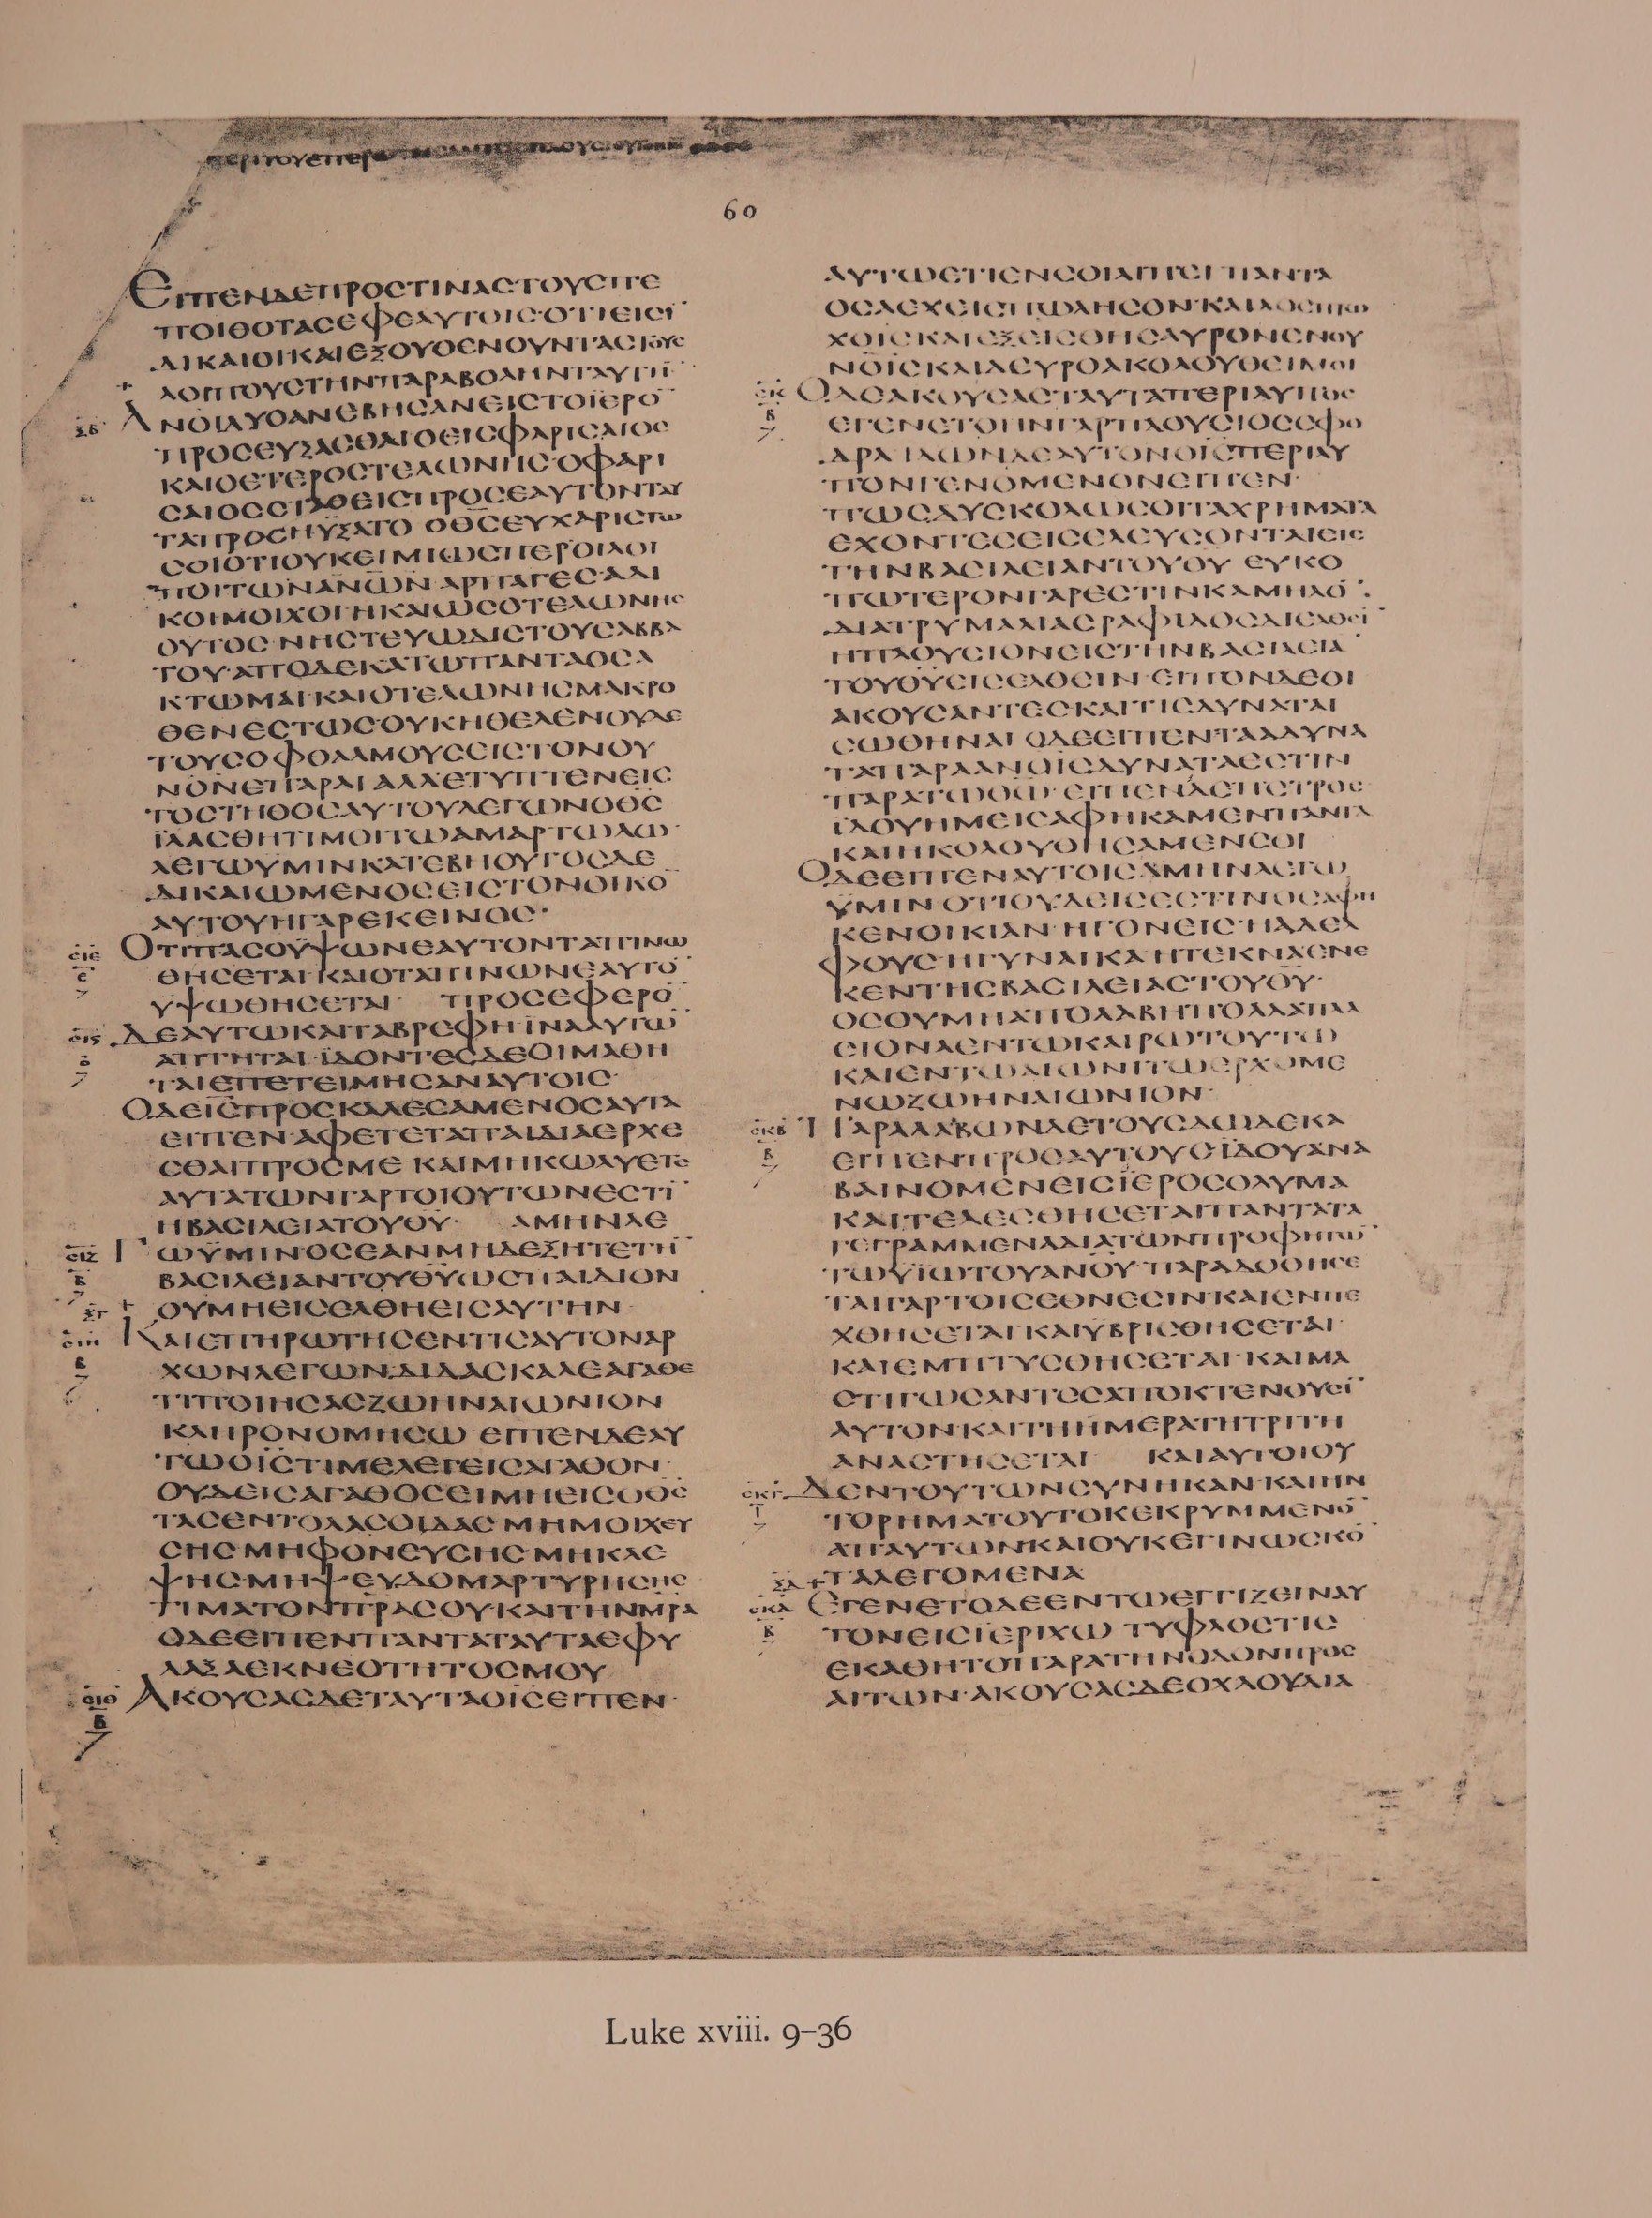 60
ΕΙΠΕΝΔΕΠΡΟΣΤΙΝΑΣΤΟΥΣΠΕ
ΠΟΙΘΟΤΑΣΕΦΕΑΥΤΟΙΣ·ΟΤΙΕΙΣΙ̅
ΔΙΚΑΙΟΙ·ΚΑΙΕΞΟΥΘΕΝΟΥΝΤΑΣ
ΛΟΙΠΟΥΣΤΗΝΠΑΡΑΒΟΛΗΝΤΑΥΤΗ̅
ΞΒ ΑΝΟΙΔΥΟΑΝΕΒΗΣΑΝΕΙΣΤΟΪΕΡΟ̅
ΠΡΟΣΕΥΞΑΣΘΑΙΟΕΙΣΦΑΡΙΣΑΙΟΣ
ΚΑΙΟΕΤΕΡΟΣΤΕΛΩΝΗΣ·ΟΦΑΡΙ
ΣΑΙΟΣΣΤΑΘΕΙΣΠΡΟΣΕΑΥΤΟΝΤΑΥ
ΤΑΠΡΟΣΗΥΞΑΤΟ ΟΘ̅Σ̅ΕΥΧΑΡΙΣΤΩ
ΣΟΙΟΤΙΟΥΚΕΙΜΙΩΣΠΕΡΟΙΛΟΙ
ΠΟΙΤΩΝΑΝ̅Ω̅Ν̅·ΑΡΠΑΓΕΣ·ΑΔΙ
ΚΟΙ·ΜΟΙΧΟΙ·ΗΚΑΙΩΣΟΤΕΛΩΝΗΣ
ΟΥΤΟΣ·ΝΗΣΤΕΥΩΔΙΣΤΟΥΣΑΒΒΑ
ΤΟΥ·ΑΠΟΔΕΚΑΤΩΠΑΝΤΑΟΣΑ
ΚΤΩΜΑΙ·ΚΑΙΟΤΕΛΩΝΗΣΜΑΚΡΟ
ΘΕΝΕΣΤΩΣΟΥΚΗΘΕΛΕΝΟΥΔΕ
ΤΟΥΣΟΦΘΑΛΜΟΥΣΕΙΣΤΟΝΟΥ
ΝΟΝΕΠΑΡΑΙ ΑΛΛΕΤΥΠΤΕΝΕΙΣ
ΤΟΣΤΗΘΟΣΑΥΤΟΥΛΕΓΩΝΟΘ̅Σ̅
ΪΛΑΣΘΗΤΙΜΟΙΤΩΑΜΑΡΤΩΛΩ·
ΛΕΓΩΫΜΙΝΚΑΤΕΒΗΟΥΤΟΣΔΕ
ΔΙΚΑΙΩΜΕΝΟΣΕΙΣΤΟΝΟΙΚΟ̅
ΑΥΤΟΥΗΓΑΡΕΚΕΙΝΟΣ·
ΣΙΕ ΟΤΙΠΑΣΟΫΨΩΝΕΑΥΤΟΝΤΑΠΙΝΩ
ΘΗΣΕΤΑΙ·ΚΑΙΟΤΑΠΙΝΩΝΕΑΥΤΟ̅
ΫΨΩΘΗΣΕΤΑΙ· ΠΡΟΣΕΦΕΡΟ̅
ΣΙϚ ΔΕΑΥΤΩΚΑΙΤΑΒΡΕΦΗΪΝΑΑΥΤΩ̅
ΑΠΤΗΤΑΙ·ΪΔΟΝΤΕΣΔΕΟΙΜΑΘΗ
ΤΑΙΕΠΕΤΕΙΜΗΣΑΝΑΥΤΟΙΣ·
ΟΔΕΙ̅Σ̅ΠΡΟΣΚΑΛΕΣΑΜΕΝΟΣΑΥΤΑ
ΕΙΠΕΝ·ΑΦΕΤΕΤΑΠΑΙΔΙΑΕΡΧΕ
ΣΘΑΙΠΡΟΣΜΕ·ΚΑΙΜΗΚΩΛΥΕΤΕ
ΑΥΤΑΤΩΝΓΑΡΤΟΙΟΥΤΩΝΕΣΤΙ̅
ΗΒΑΣΙΛΕΙΑΤΟΥΘ̅Υ̅· ΑΜΗΝΛΕ
ΣΙΖ ΓΩΫΜΙΝΟΣΕΑΝΜΗΔΕΞΗΤΕΤΗ̅
ΒΑΣΙΛΕΙΑΝΤΟΥΘ̅Υ̅ΩΣΠΑΙΔΙΟΝ
ΞΓ ΟΥΜΗΕΙΣΕΛΘΗΕΙΣΑΥΤΗΝ·
ΣΙΗ ΚΑΙΕΠΗΡΩΤΗΣΕΝΤΙΣΑΥΤΟΝΑΡ
ΧΩΝΛΕΓΩΝ·ΔΙΔΑΣΚΑΛΕΑΓΑΘΕ
ΤΙΠΟΙΗΣΑΣΖΩΗΝΑΙΩΝΙΟΝ
ΚΛΗΡΟΝΟΜΗΣΩ·ΕΙΠΕΝΔΕΑΥ
ΤΩΟΙ̅Σ̅ΤΙΜΕΛΕΓΕΙΣΑΓΑΘΟΝ·
ΟΥΔΕΙΣΑΓΑΘΟΣΕΙΜΗΕΙΣΟΘ̅Σ̅
ΤΑΣΕΝΤΟΛΑΣΟΙΔΑΣ·ΜΗΜΟΙΧΕΥ
ΣΗΣ·ΜΗΦΟΝΕΥΣΗΣ·ΜΗΚΛΕ
ΨΗΣ·ΜΗΨΕΥΔΟΜΑΡΤΥΡΗΣΗΣ
ΤΙΜΑΤΟΝΠ̅Ρ̅ΑΣΟΥΚΑΙΤΗΝΜ̅Ρ̅Α
ΟΔΕΕΙΠΕΝΠΑΝΤΑΤΑΥΤΑΕΦΥ
ΛΑΞΑΕΚΝΕΟΤΗΤΟΣΜΟΥ
ΣΙΘ ΑΚΟΥΣΑΣΔΕΤΑΥΤΑΟΙ̅Σ̅ΕΙΠΕΝ·
ΑΥΤΩΕΤΙΕΝΣΟΙΛΙΠΕΙ·ΠΑΝΤΑ
ΟΣΑΕΧΕΙΣΠΩΛΗΣΟΝ·ΚΑΙΔΟΣΠΤΩ
ΧΟΙΣΚΑΙΕΞΕΙΣΘΗΣΑΥΡΟΝΕΝΟΥ
ΝΟΙΣΚΑΙΔΕΥΡΟΑΚΟΛΟΥΘΕΙΜΟΙ
ΣΚ ΟΔΕΑΚΟΥΣΑΣΤΑΥΤΑΠΕΡΙΛΥΠΟΣ
ΕΓΕΝΕΤΟΗΝΓΑΡΠΛΟΥΣΙΟΣΣΦΟ
ΔΡΑ ΙΔΩΝΔΕΑΥΤΟΝΟΙ̅Σ̅ΠΕΡΙΛΥ
ΠΟΝΓΕΝΟΜΕΝΟΝΕΙΠΕΝ·
ΠΩΣΔΥΣΚΟΛΩΣΟΙΤΑΧΡΗΜΑΤΑ
ΕΧΟΝΤΕΣΕΙΣΕΛΕΥΣΟΝΤΑΙΕΙΣ
ΤΗΝΒΑΣΙΛΕΙΑΝΤΟΥΘ̅Υ̅ ΕΥΚΟ
ΠΩΤΕΡΟΝΓΑΡΕΣΤΙΝΚΑΜΗΛΟ̅
ΔΙΑΤΡΥΜΑΛΙΑΣΡΑΦΙΔΟΣΔΙΕΛΘΕΙ̅
ΗΠΛΟΥΣΙΟΝΕΙΣΤΗΝΒΑΣΙΛΕΙΑ̅
ΤΟΥΘ̅Υ̅ΕΙΣΕΛΘΕΙΝ·ΕΙΠΟΝΔΕΟΙ
ΑΚΟΥΣΑΝΤΕΣΚΑΙΤΙΣΔΥΝΑΤΑΙ
ΣΩΘΗΝΑΙ ΟΔΕΕΙΠΕΝΤΑΑΔΥΝΑ
ΤΑΠΑΡΑΑΝ̅Ο̅Ι̅Σ̅ΔΥΝΑΤΑΕΣΤΙΝ
ΠΑΡΑΤΩΘ̅Ω̅·ΕΙΠΕΝΔΕΠΕΤΡΟΣ
ΪΔΟΥΗΜΕΙΣΑΦΗΚΑΜΕΝΠΑΝΤΑ
ΚΑΙΗΚΟΛΟΥΘΗΣΑΜΕΝΣΟΙ
ΟΔΕΕΙΠΕΝΑΥΤΟΙΣΑΜΗΝΛΕΓΩ
ΫΜΙΝ ΟΤΙΟΥΔΕΙΣΕΣΤΙΝΟΣΑΦΗ
ΚΕΝΟΙΚΙΑΝ·ΗΓΟΝΕΙΣ·ΗΑΔΕΛ
ΦΟΥΣ·ΗΓΥΝΑΙΚΑ·ΗΤΕΚΝΑΕΝΕ
ΚΕΝΤΗΣΒΑΣΙΛΕΙΑΣΤΟΥΘ̅Υ̅·
ΟΣΟΥΜΗΑΠΟΛΑΒΗΠΟΛΛΑΠΛΑ
ΣΙΟΝΑΕΝΤΩΚΑΙΡΩΤΟΥΤΩ
ΚΑΙΕΝΤΩΑΙΩΝΙΤΩΕΡΧΟΜΕ
ΝΩΖΩΗΝΑΙΩΝΙΟΝ·
ΣΚΒ ΠΑΡΑΛΑΒΩΝΔΕΤΟΥΣΔΩΔΕΚΑ
ΕΙΠΕΝΠΡΟΣΑΥΤΟΥΣ·ΪΔΟΥΑΝΑ
ΒΑΙΝΟΜΕΝΕΙΣΪΕΡΟΣΟΛΥΜΑ
ΚΑΙΤΕΛΕΣΘΗΣΕΤΑΙΠΑΝΤΑΤΑ
ΓΕΓΡΑΜΜΕΝΑΔΙΑΤΩΝΠΡΟΦΗΤΩ̅
ΤΩΫΪΩΤΟΥΑΝ̅Ο̅Υ̅·ΠΑΡΑΔΟΘΗΣΕ
ΤΑΙΓΑΡΤΟΙΣΕΘΝΕΣΙΝΚΑΙΕΝΠΕ
ΧΘΗΣΕΤΑΙ·ΚΑΙΫΒΡΙΣΘΗΣΕΤΑΙ·
ΚΑΙΕΜΠΤΥΣΘΗΣΕΤΑΙ·ΚΑΙΜΑ
ΣΤΙΓΩΣΑΝΤΕΣΑΠΟΚΤΕΝΟΥΣΙ̅
ΑΥΤΟΝ·ΚΑΙΤΗΗΜΕΡΑΤΗΤΡΙΤΗ
ΑΝΑΣΤΗΣΕΤΑΙ· ΚΑΙΑΥΤΟΙΟΥ
ΣΚΓ ΔΕΝΤΟΥΤΩΝΣΥΝΗΚΑΝ·ΚΑΙΗΝ
ΤΟΡΗΜΑΤΟΥΤΟΚΕΚΡΥΜΜΕΝΟ̅
ΑΠΑΥΤΩΝΚΑΙΟΥΚΕΓΙΝΩΣΚΟ̅
ΞΔ ΤΑΛΕΓΟΜΕΝΑ
ΣΚΔ ΕΓΕΝΕΤΟΔΕΕΝΤΩΕΓΓΙΖΕΙΝΑΥ
ΤΟΝΕΙΣΪΕΡΙΧΩ ΤΥΦΛΟΣΤΙΣ
ΕΚΑΘΗΤΟΠΑΡΑΤΗΝΟΔΟΝΠΡΟΣ
ΑΙΤΩΝ·ΑΚΟΥΣΑΣΔΕΟΧΛΟΥΔΙΑ
Luke xviii. 9–36